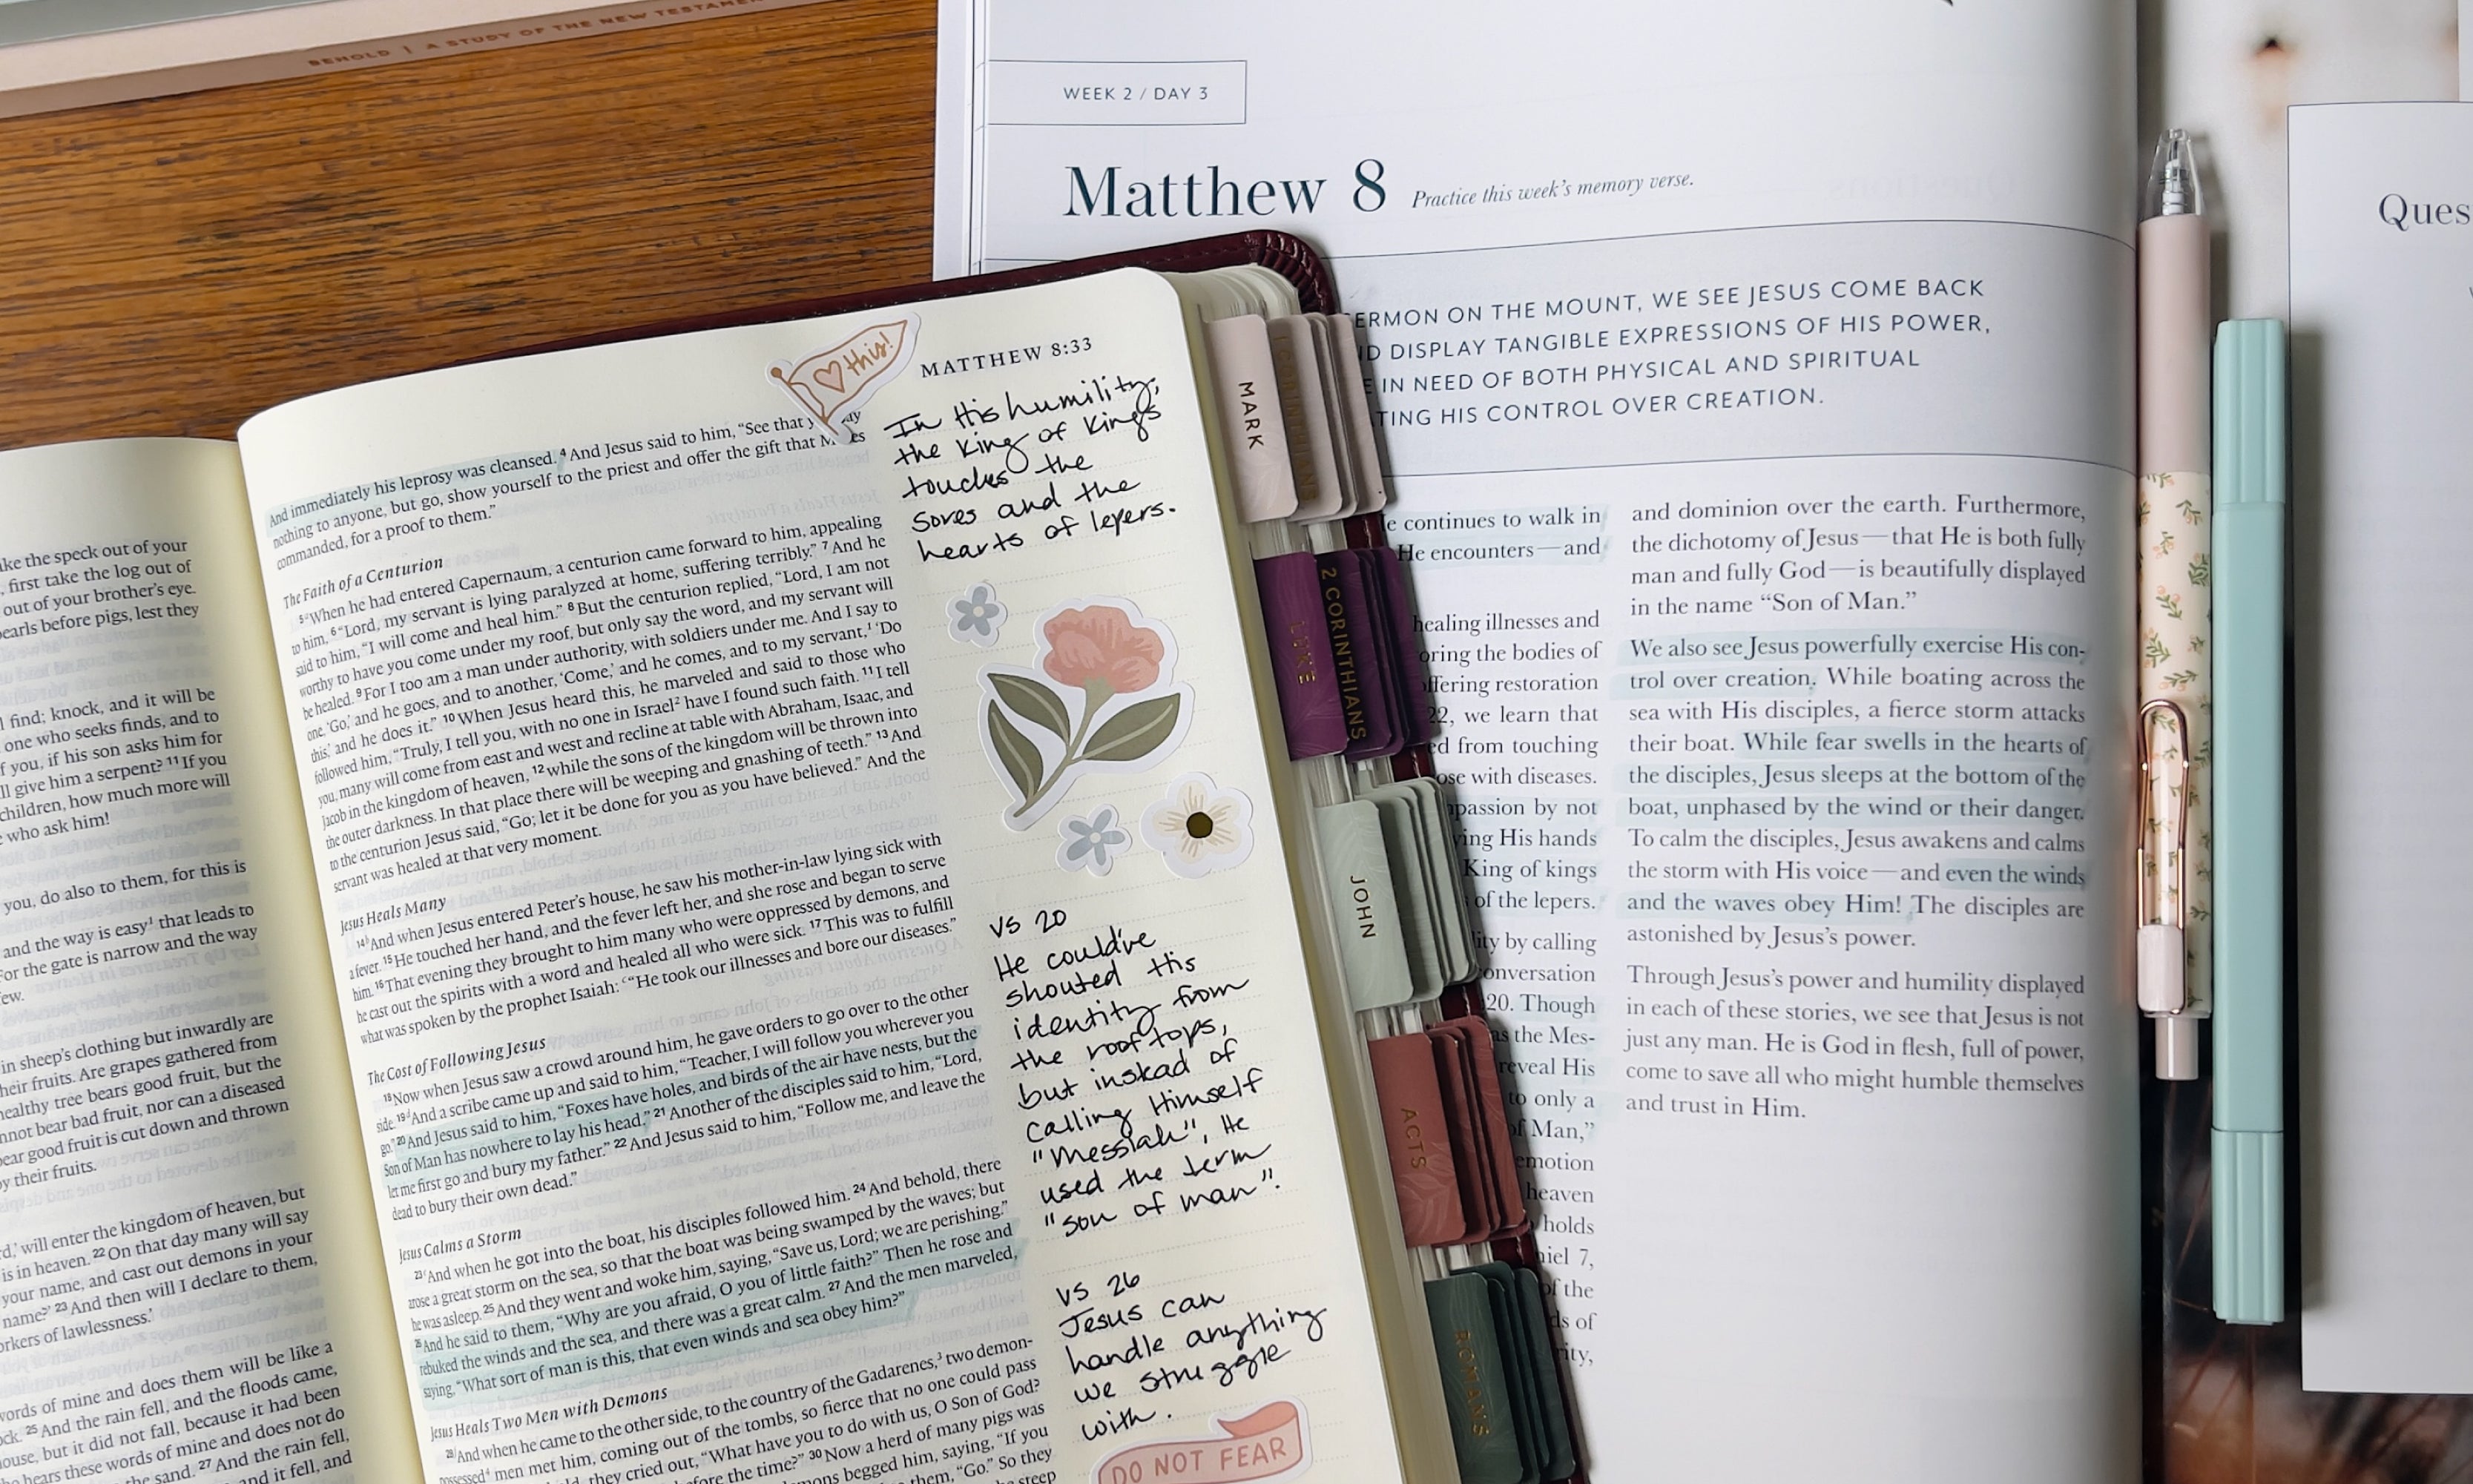 BEHOLD | A STUDY OF THE NEW TESTAMEN
WEEK 2 / DAY 3
Matthew 8 Practice this week's memory verse.
ERMON ON THE MOUNT, WE SEE JESUS COME BACK
ND DISPLAY TANGIBLE EXPRESSIONS OF HIS POWER,
E IN NEED OF BOTH PHYSICAL AND SPIRITUAL
TING HIS CONTROL OVER CREATION.
e continues to walk in
He encounters—and
healing illnesses and
oring the bodies of
ffering restoration
22, we learn that
ed from touching
ose with diseases.
passion by not
ying His hands
King of kings
of the lepers.
ity by calling
onversation
20. Though
as the Mes-
reveal His
to only a
of Man,"
emotion
heaven
holds
niel 7,
of the
ds of
rity,
and dominion over the earth. Furthermore,
the dichotomy of Jesus—that He is both fully
man and fully God—is beautifully displayed
in the name "Son of Man."
We also see Jesus powerfully exercise His con-
trol over creation. While boating across the
sea with His disciples, a fierce storm attacks
their boat. While fear swells in the hearts of
the disciples, Jesus sleeps at the bottom of the
boat, unphased by the wind or their danger.
To calm the disciples, Jesus awakens and calms
the storm with His voice—and even the winds
and the waves obey Him! The disciples are
astonished by Jesus's power.
Through Jesus's power and humility displayed
in each of these stories, we see that Jesus is not
just any man. He is God in flesh, full of power,
come to save all who might humble themselves
and trust in Him.
Ques
ke the speck out of your
, first take the log out of
out of your brother's eye.
earls before pigs, lest they
l find; knock, and it will be
one who seeks finds, and to
f you, if his son asks him for
ll give him a serpent? 11 If you
children, how much more will
who ask him!
you, do also to them, for this is
and the way is easy1 that leads to
or the gate is narrow and the way
ew.
in sheep's clothing but inwardly are
heir fruits. Are grapes gathered from
healthy tree bears good fruit, but the
nnot bear bad fruit, nor can a diseased
bear good fruit is cut down and thrown
y their fruits.
rd,' will enter the kingdom of heaven, but
is in heaven. 22 On that day many will say
your name, and cast out demons in your
name?' 23 And then will I declare to them,
orkers of lawlessness.'
words of mine and does them will be like a
ock. 25 And the rain fell, and the floods came,
house, but it did not fall, because it had been
ho hears these words of mine and does not do
the sand. 27 And the rain fell,
and it fell, and
♡ this!
MATTHEW 8:33
And immediately his leprosy was cleansed. 4 And Jesus said to him, "See that y ay
nothing to anyone, but go, show yourself to the priest and offer the gift that M es
commanded, for a proof to them."
The Faith of a Centurion
5 When he had entered Capernaum, a centurion came forward to him, appealing
to him, 6 "Lord, my servant is lying paralyzed at home, suffering terribly." 7 And he
said to him, "I will come and heal him." 8 But the centurion replied, "Lord, I am not
worthy to have you come under my roof, but only say the word, and my servant will
be healed. 9 For I too am a man under authority, with soldiers under me. And I say to
one, 'Go,' and he goes, and to another, 'Come,' and he comes, and to my servant,1 'Do
this,' and he does it." 10 When Jesus heard this, he marveled and said to those who
followed him, "Truly, I tell you, with no one in Israel2 have I found such faith. 11 I tell
you, many will come from east and west and recline at table with Abraham, Isaac, and
Jacob in the kingdom of heaven, 12 while the sons of the kingdom will be thrown into
the outer darkness. In that place there will be weeping and gnashing of teeth." 13 And
to the centurion Jesus said, "Go; let it be done for you as you have believed." And the
servant was healed at that very moment.
Jesus Heals Many
14 And when Jesus entered Peter's house, he saw his mother-in-law lying sick with
a fever. 15 He touched her hand, and the fever left her, and she rose and began to serve
him. 16 That evening they brought to him many who were oppressed by demons, and
he cast out the spirits with a word and healed all who were sick. 17 This was to fulfill
what was spoken by the prophet Isaiah: "He took our illnesses and bore our diseases."
The Cost of Following Jesus
18 Now when Jesus saw a crowd around him, he gave orders to go over to the other
side. 19 And a scribe came up and said to him, "Teacher, I will follow you wherever you
go." 20 And Jesus said to him, "Foxes have holes, and birds of the air have nests, but the
Son of Man has nowhere to lay his head." 21 Another of the disciples said to him, "Lord,
let me first go and bury my father." 22 And Jesus said to him, "Follow me, and leave the
dead to bury their own dead."
Jesus Calms a Storm
23 And when he got into the boat, his disciples followed him. 24 And behold, there
arose a great storm on the sea, so that the boat was being swamped by the waves; but
he was asleep. 25 And they went and woke him, saying, "Save us, Lord; we are perishing."
26 And he said to them, "Why are you afraid, O you of little faith?" Then he rose and
rebuked the winds and the sea, and there was a great calm. 27 And the men marveled,
saying, "What sort of man is this, that even winds and sea obey him?"
Jesus Heals Two Men with Demons
28 And when he came to the other side, to the country of the Gadarenes,3 two demon-
possessed4 men met him, coming out of the tombs, so fierce that no one could pass
they cried out, "What have you to do with us, O Son of God?
before the time?" 30 Now a herd of many pigs was
mons begged him, saying, "If you
them, "Go." So they
steep
In His humility,
the King of Kings
touches the
sores and the
hearts of lepers.
vs 20
He could've
shouted His
identity from
the rooftops,
but instead of
calling Himself
"Messiah", He
used the term
"son of man".
vs 26
Jesus can
handle anything
we struggle
with.
DO NOT FEAR
MARK
1 CORINTHIANS
LUKE
2 CORINTHIANS
JOHN
ACTS
ROMANS